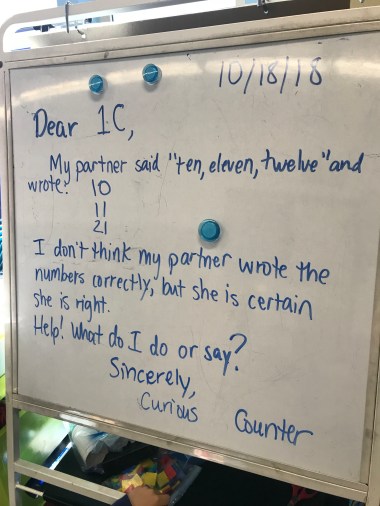 10/18/18
Dear 1C,
My partner said "ten, eleven, twelve" and
wrote: 10
11
21
I don't think my partner wrote the
numbers correctly, but she is certain
she is right.
Help! What do I do or say?
Sincerely,
Curious Counter